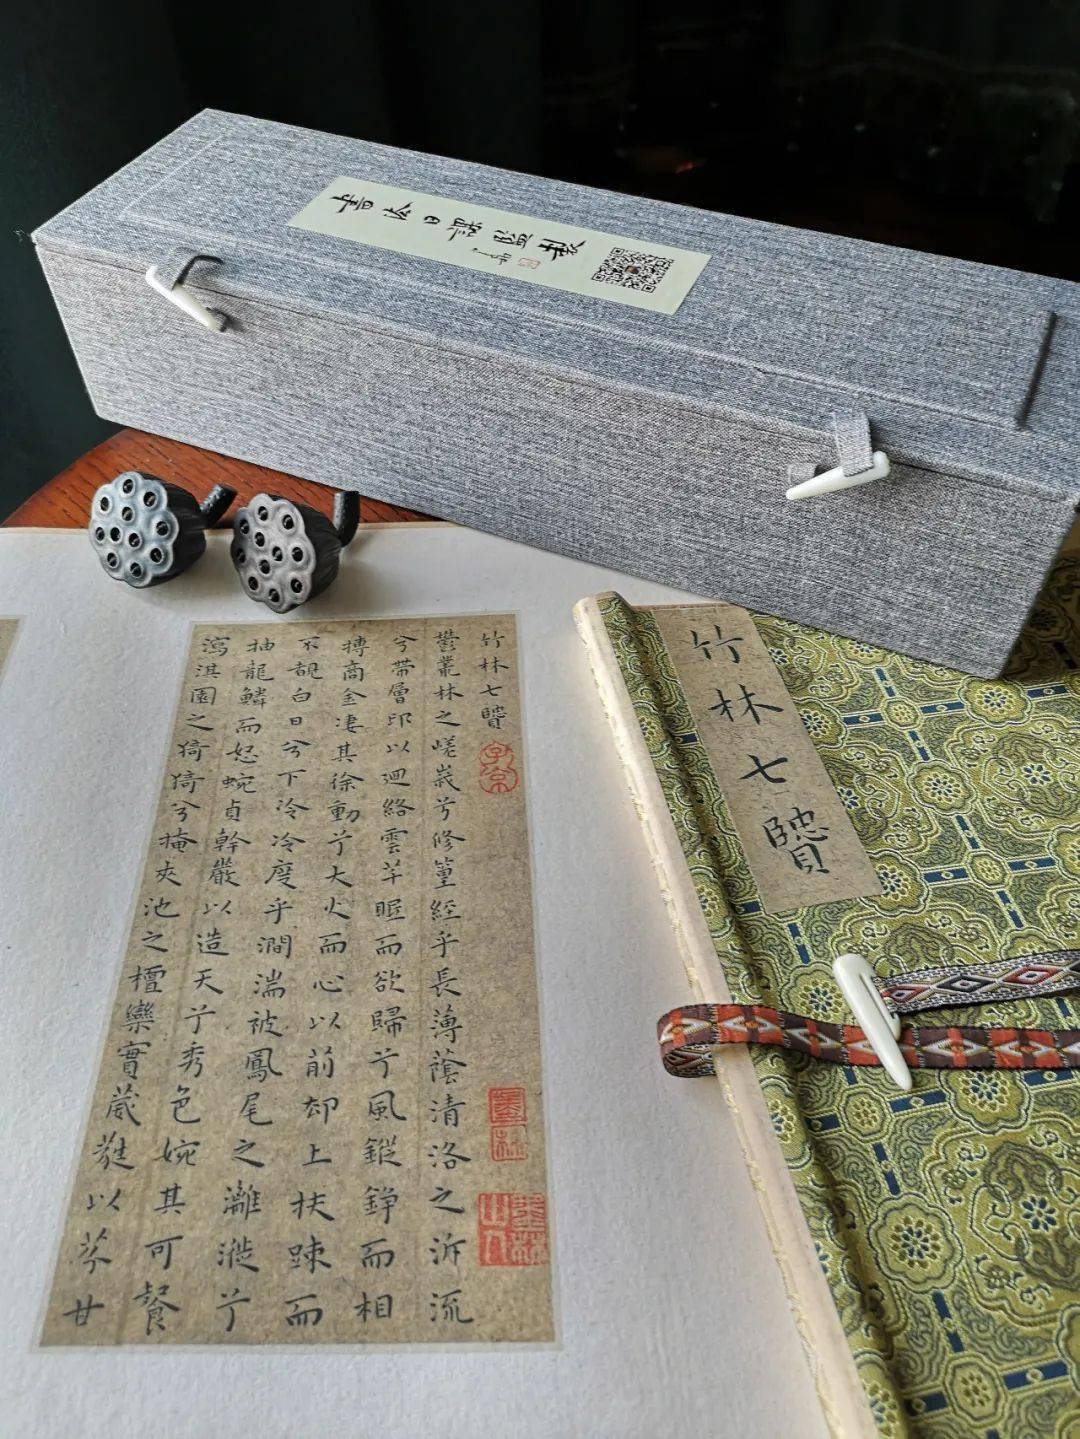 書法日課監製
竹林七贒
竹林七贒
子京
墨林
墨林山人
鬱叢林之嵯峩兮修篁經乎長薄蔭清洛之泝流
兮帶層邱以迴絡雲芊眠而欲歸兮風鏦錚而相
搏高金凄其徐動兮大火而心以前却上扶踈而
不覩白日兮下泠泠度乎澗湍被鳳尾之灕漇兮
抽龍鱗而蜿貞幹嚴以造天兮秀色婉其可餐
瀉淇園之猗猗兮掩夾池之檀欒實葳蕤以芬甘